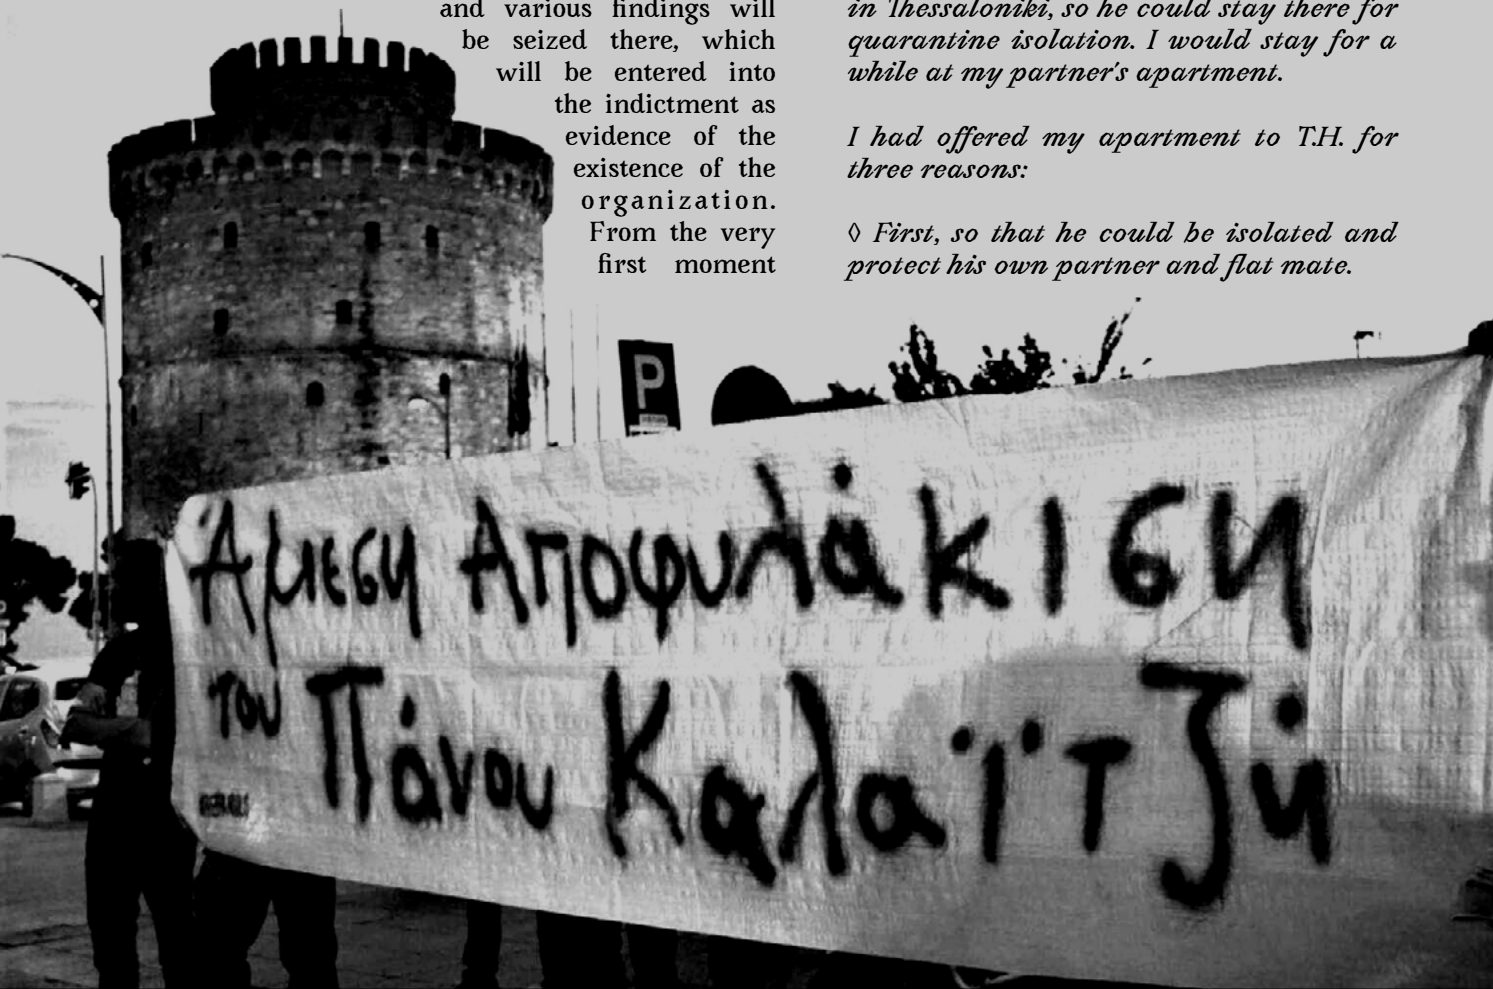 and various findings will
be seized there, which
will be entered into
the indictment as
evidence of the
existence of the
organization.
From the very
first moment
in Thessaloniki, so he could stay there for
quarantine isolation. I would stay for a
while at my partner's apartment.
I had offered my apartment to T.H. for
three reasons:
◊ First, so that he could be isolated and
protect his own partner and flat mate.
P
Άμεση Αποφυλάκιση
του Πάνου Καλαϊτζή